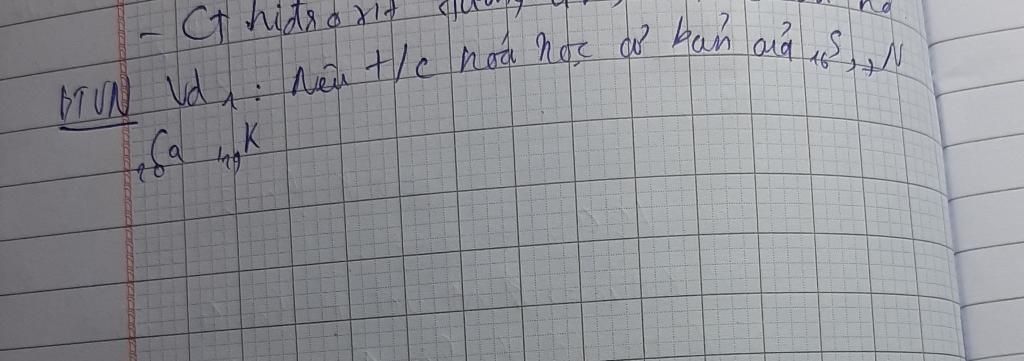 - CT hiđroxit
BTVN Vd 1: Nêu t/c hoá học cơ bản của 16S, 7N
20Ca 19K